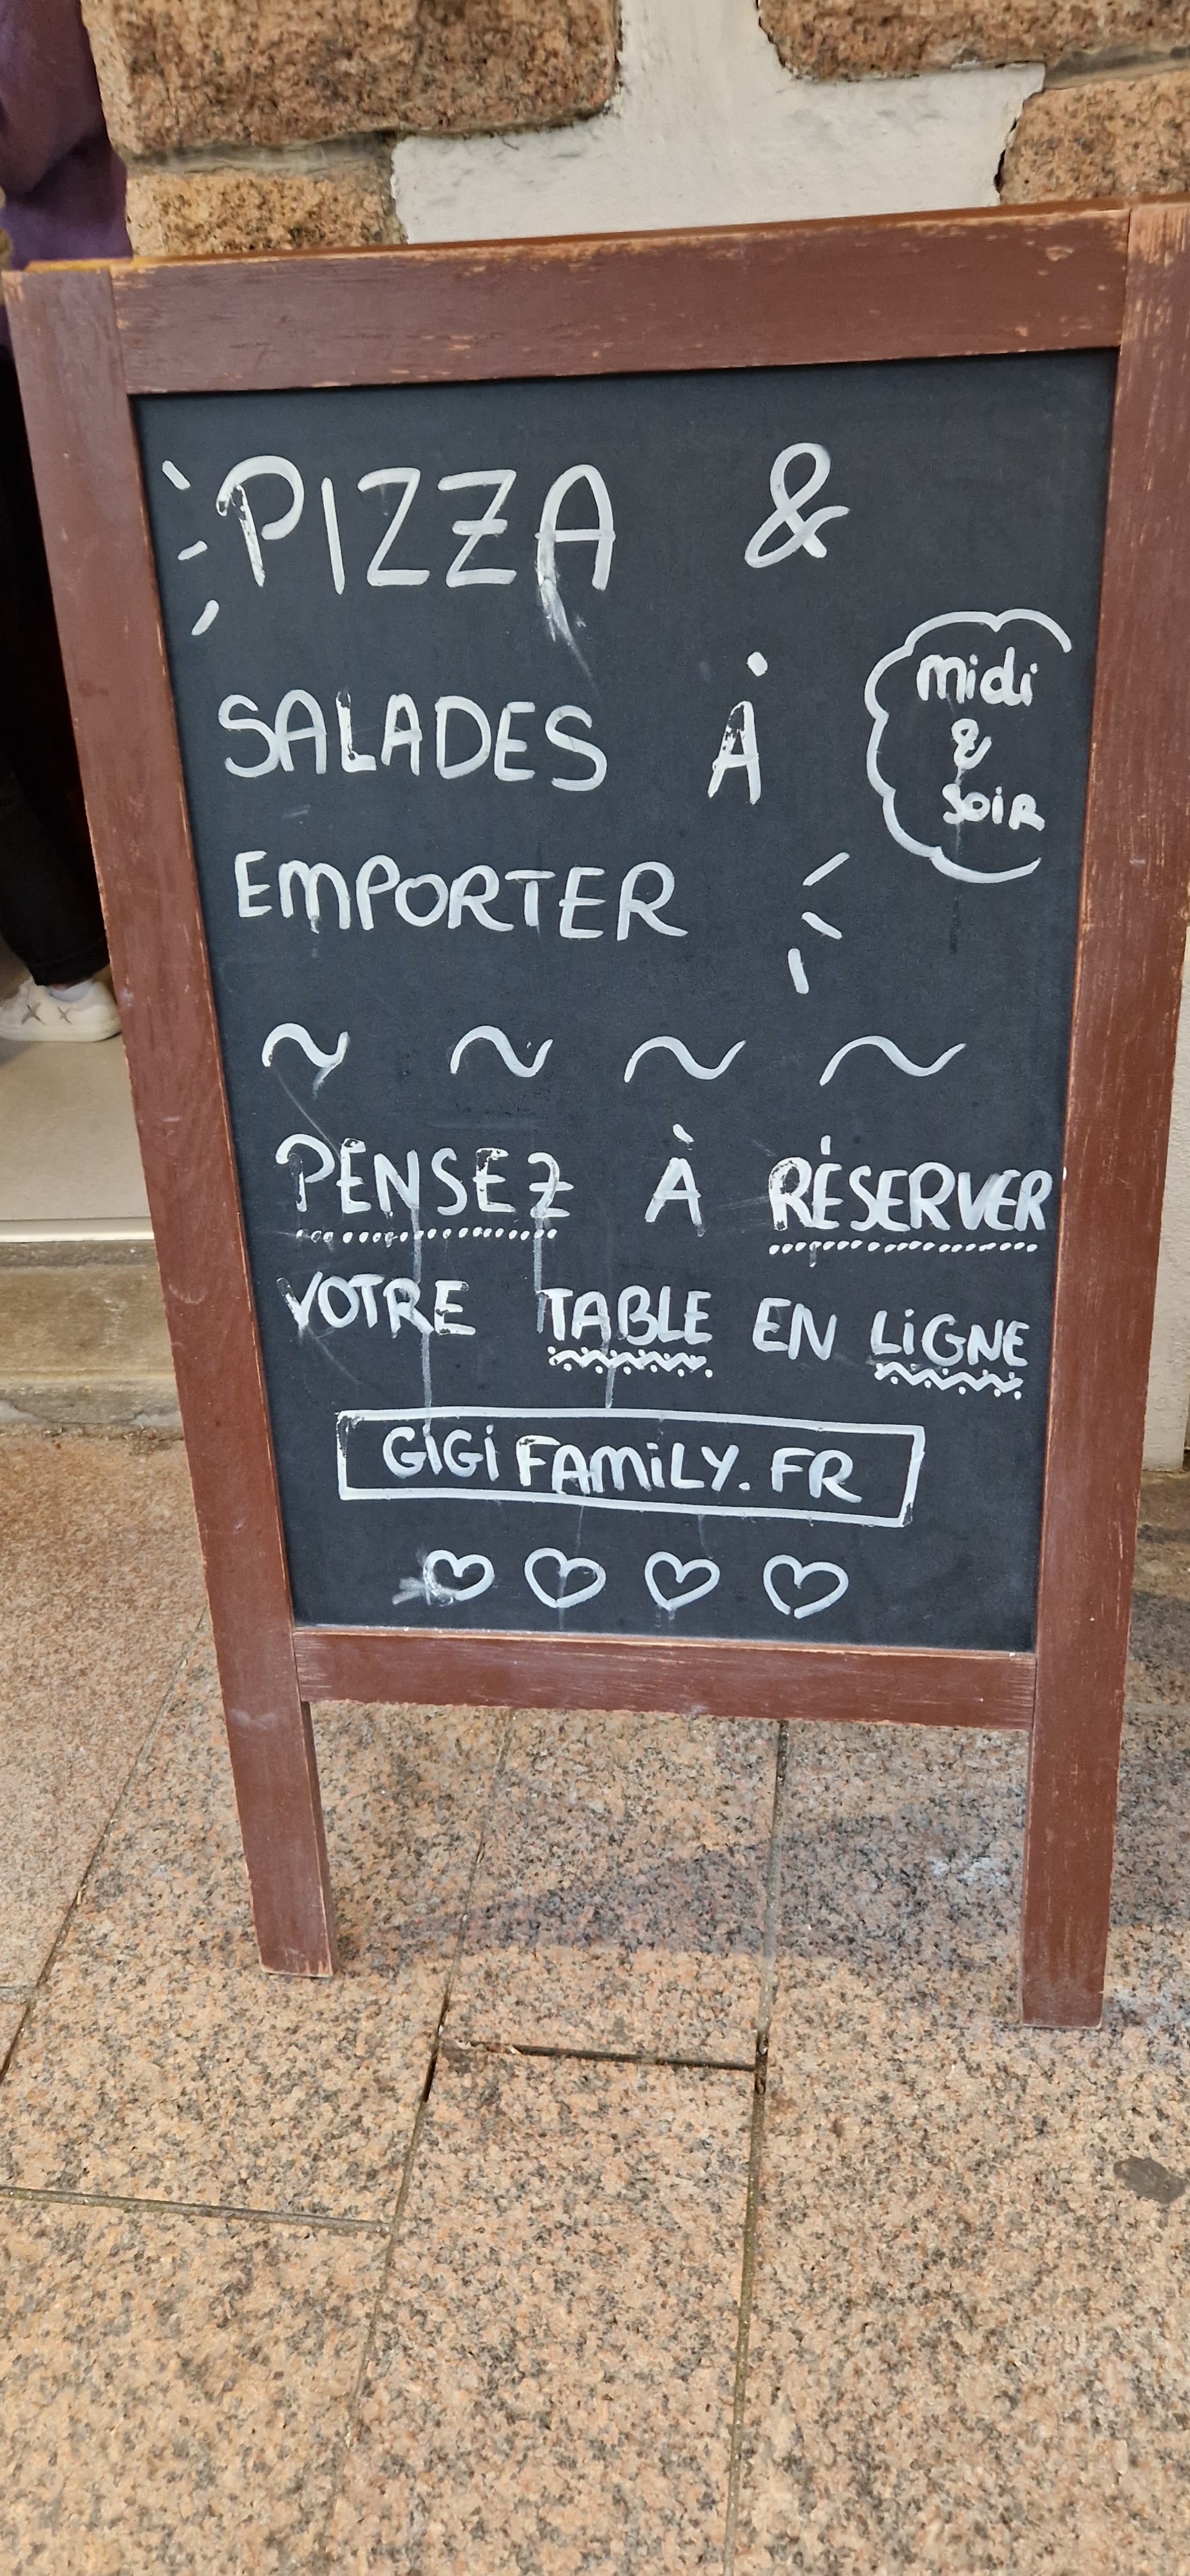 PIZZA &
SALADES À
midi
&
soir
EMPORTER
~ ~ ~ ~
PENSEZ À RÉSERVER
VOTRE TABLE EN LIGNE
GIGIFAMILY.FR
♡ ♡ ♡ ♡